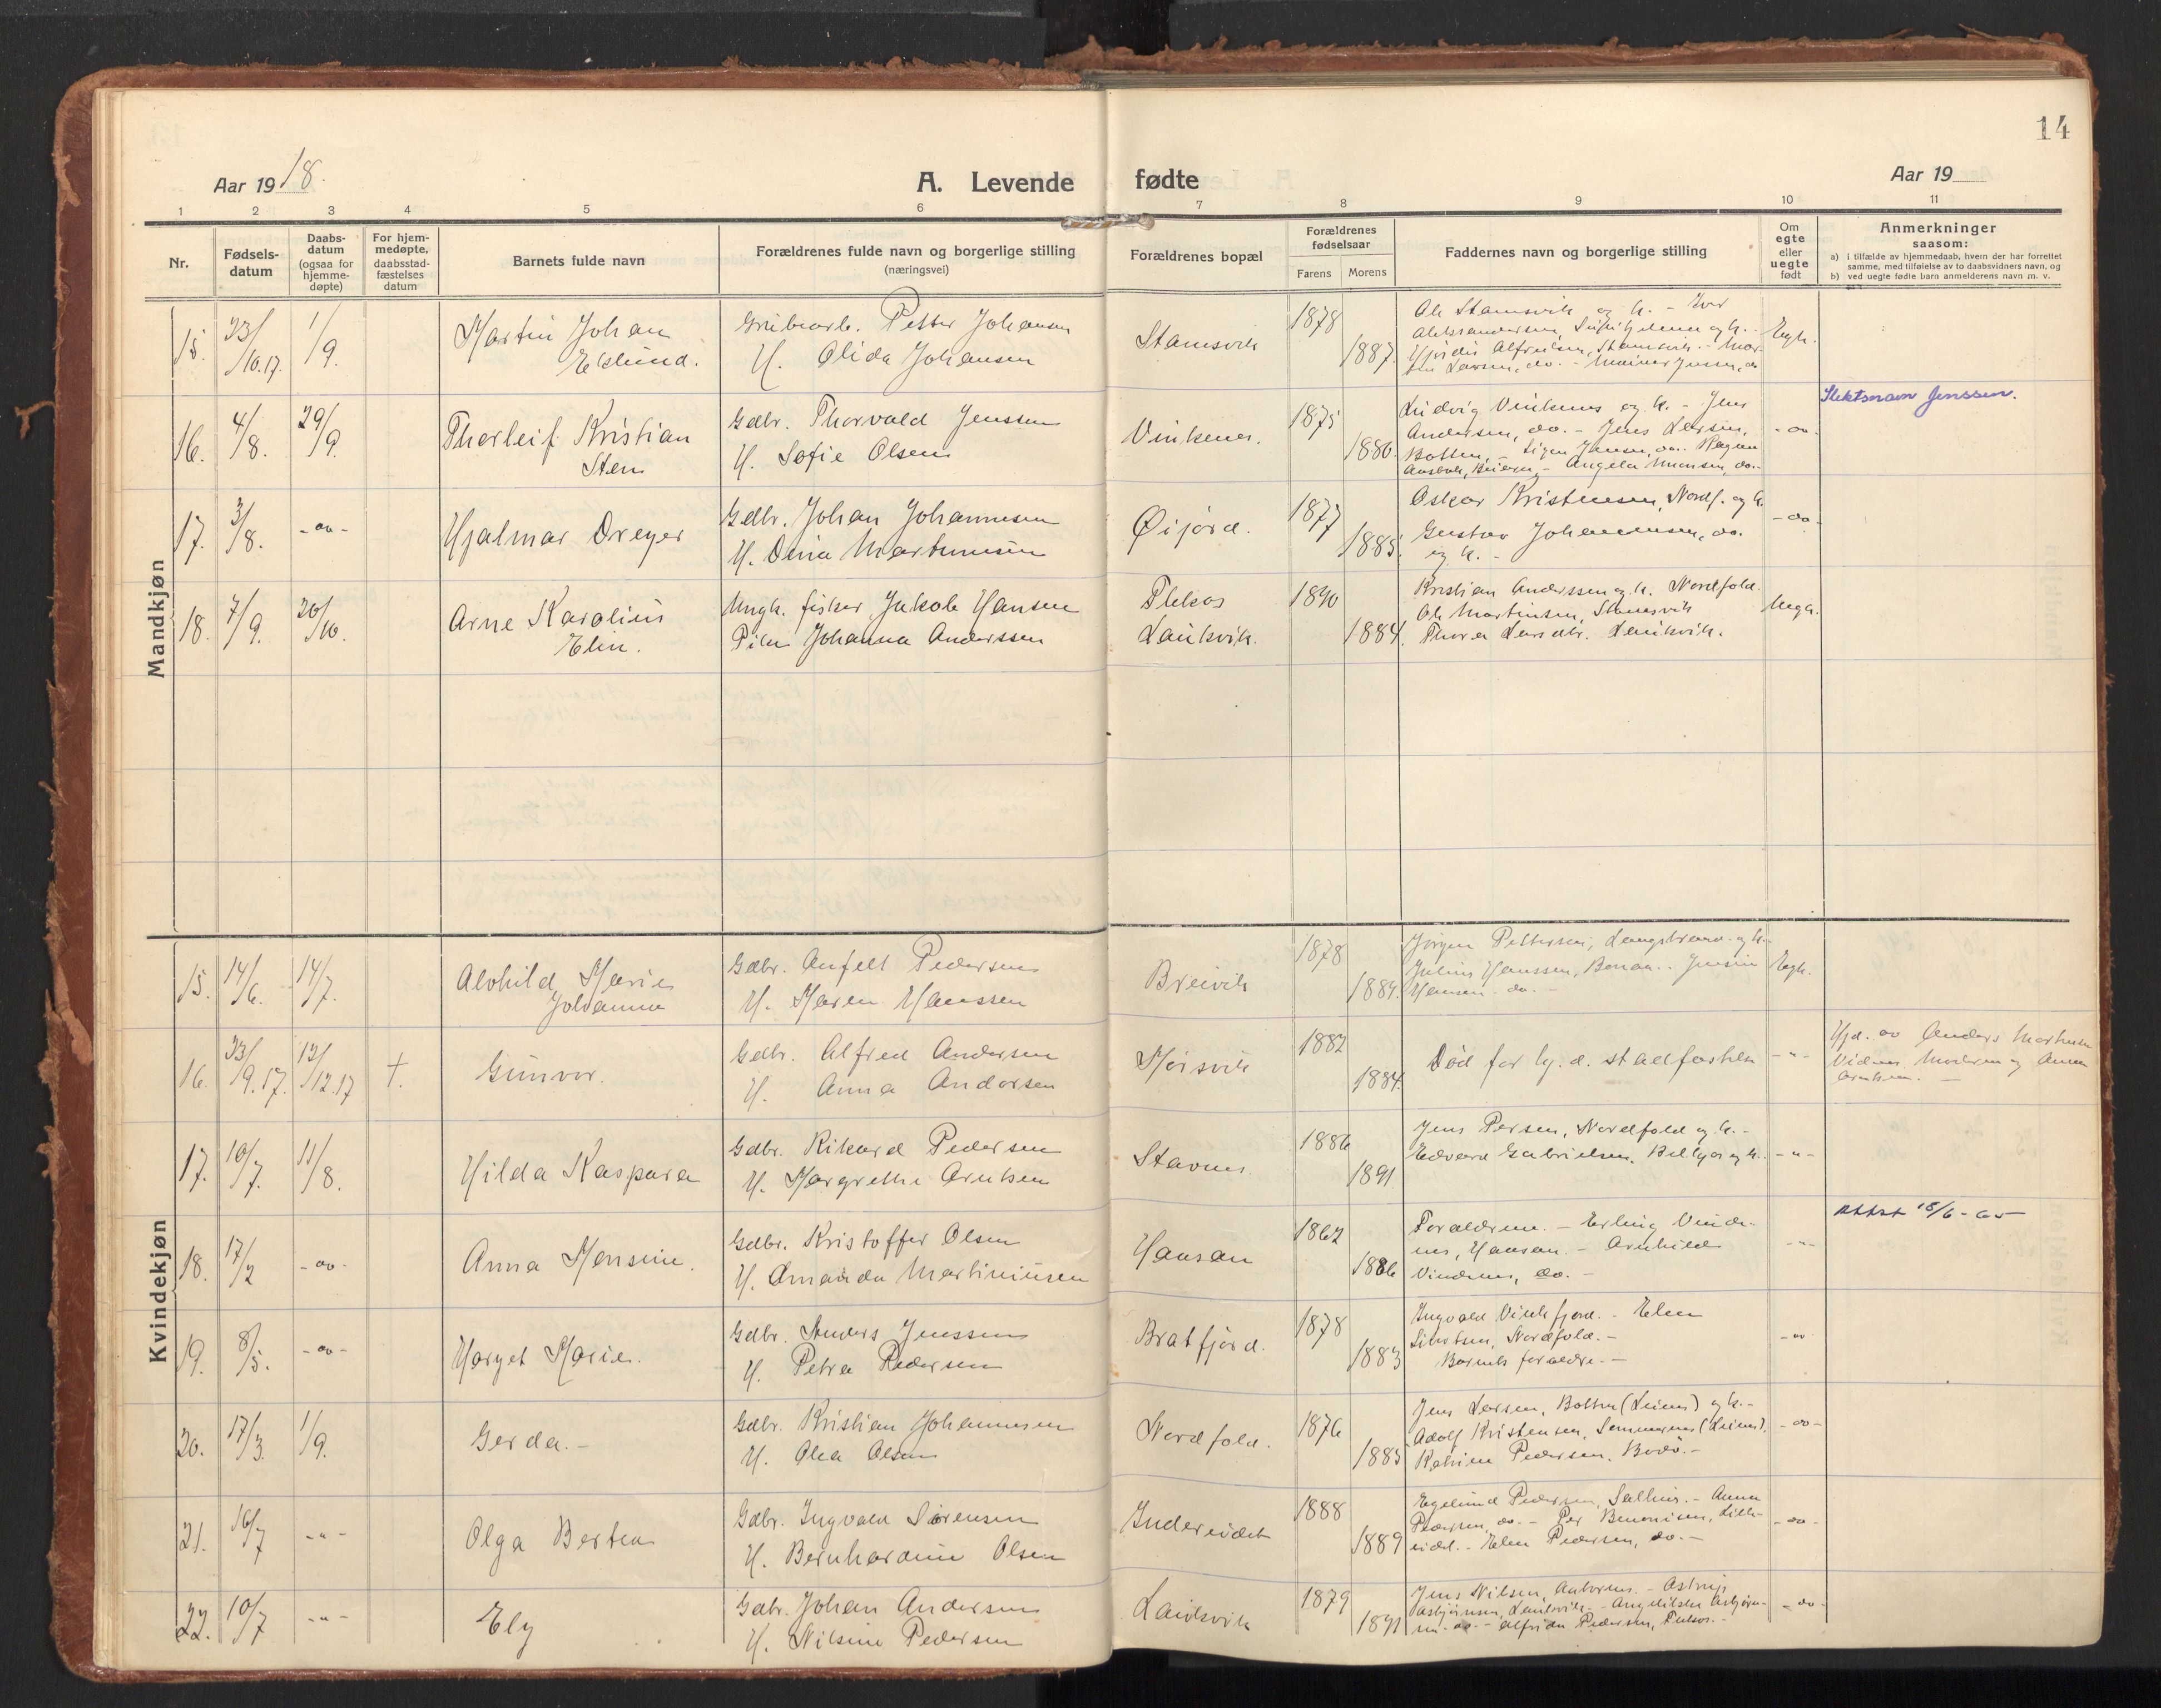 14
Aar 1918.
A. Levende fødte
Aar 19
1 2 3 4 5 6 7 8 9 10 11
Nr.
Fødsels-
datum
Daabs-
datum
(ogsaa for
hjemme-
døpte)
For hjem-
medøpte,
daabsstad-
fæstelses
datum
Barnets fulde navn
Forældrenes fulde navn og borgerlige stilling
(næringsvei)
Forældrenes bopæl
Forældrenes
fødselsaar
Farens Morens
Faddernes navn og borgerlige stilling
Om
egte
eller
uegte
født
Anmerkninger
saasom:
a) i tilfælde av hjemmedaab, hvem der har forrettet
samme, med tilføielse av to daabsvidners navn, og
b) ved uegte fødte barn anmelderens navn m. v.
Mandkjøn
15. 23/10.17. 1/9.
Martin Johan
Eklund.
Petter Johansen
H. Olida Johansen
Stamsvik
1878
1887.
Ole Stamsvik og h. - Ivar
Egh.
16. 4/8. 29/9.
Thorleif Kristian
Sten
Gdbr. Thorvald Jenssen
H. Sofie Olsen
Vinkenes.
1875
1880.
Ludvig Vinkenes og h. - Jens
Andersen, do. - Jens Larsen,
Botten, -
- do -
Slektsnavn Jenssen.
17. 3/8. - do -
Hjalmar Dreyer
Gdbr. Johan Johannesen
H. Dina Martinusen
Øijord.
1877
1885.
Oskar Kristensen, Nordf. og h.
Gustav Johannesen, do.
og h. -
- do -
18. 7/9. 20/10.
Arne Karolius
Elin.
Ungk. fisker Jakob Hansen
Pike Johanna Anderssen
Flekos
Laukvik.
1890
1884.
Kristian Anderssen og h. Nordfold.
Ole Martinsen, Stamsvik
Thora Larsdtr. Laukvik.
Uegh.
Kvindekjøn
15. 14/6. 14/7.
Alvhild Marie
Johanna
Gdbr. Anfelt Pedersen
H. Maren Hanssen
Breivik
1878
1884.
Jørgen Pettersen, Langstrand. og h.
Julius Hanssen, Jensine
Hansen. do. -
Egh.
16. 23/9.17. 12/12.17 †.
Gunvor.
Gdbr. Alfred Andersen
H. Anna Andersen
Mørsvik
1882
1884.
Død før hj. d. stadfæstelse
- " -
Hjd. av Anders Martinsen
Vidner Moderen og Anna
17. 10/7. 11/8.
Hilda Kaspara
Gdbr. Rikard Pedersen
H. Margrethe Arntsen
Stavnes.
1886
1891
Jens Persen, Nordfold og h. -
Edvard Gabrielsen,
- " -
18. 17/2 - do -
Anna Jensine.
Gdbr. Kristoffer Olsen
H. Amanda Martiniusen
Hansan
1862
1886
Forældrene. - Erling Vinde-
nes, Hansan. - Arnhild
Vindenes, do. -
- " -
attst 15/6-65
19. 8/5. - do -
Harget Marie.
Gdbr. Anders Jenssen
H. Petra Pedersen
Bratfjord.
1878
1883
Ingvald Vinkfjord. - Elen
Sivertsen, Nordfold. -
Barnets forældre. -
- do
20. 17/3. 1/9.
Gerda. -
Gdbr. Kristian Johannesen
H. Olea Olsen
Nordfold.
1876
1885
Jens Larsen, Botten (Leines) og h. -
Adolf Kristensen, (Leines),
Katrine Pedersen, Bodø. -
- do -
21. 16/7 - " -
Olga Bertea
Gdbr. Ingvald Sørensen
H. Bernhardine Olsen
Indereidet
1888
1889
Egelund Pedersen, - Anna
Pedersen, do. - Per Benonisen,
eidet. - Elen Pedersen, do. -
- do -
22. 10/7 - " -
Ely
Gdbr. Johan Andersen
H. Nilsine Pedersen
Laukvik
1879
1891
Jens Nilsen,
Asbjørnsen, Laukvik. -
- Alfrida Pedersen,
- do -